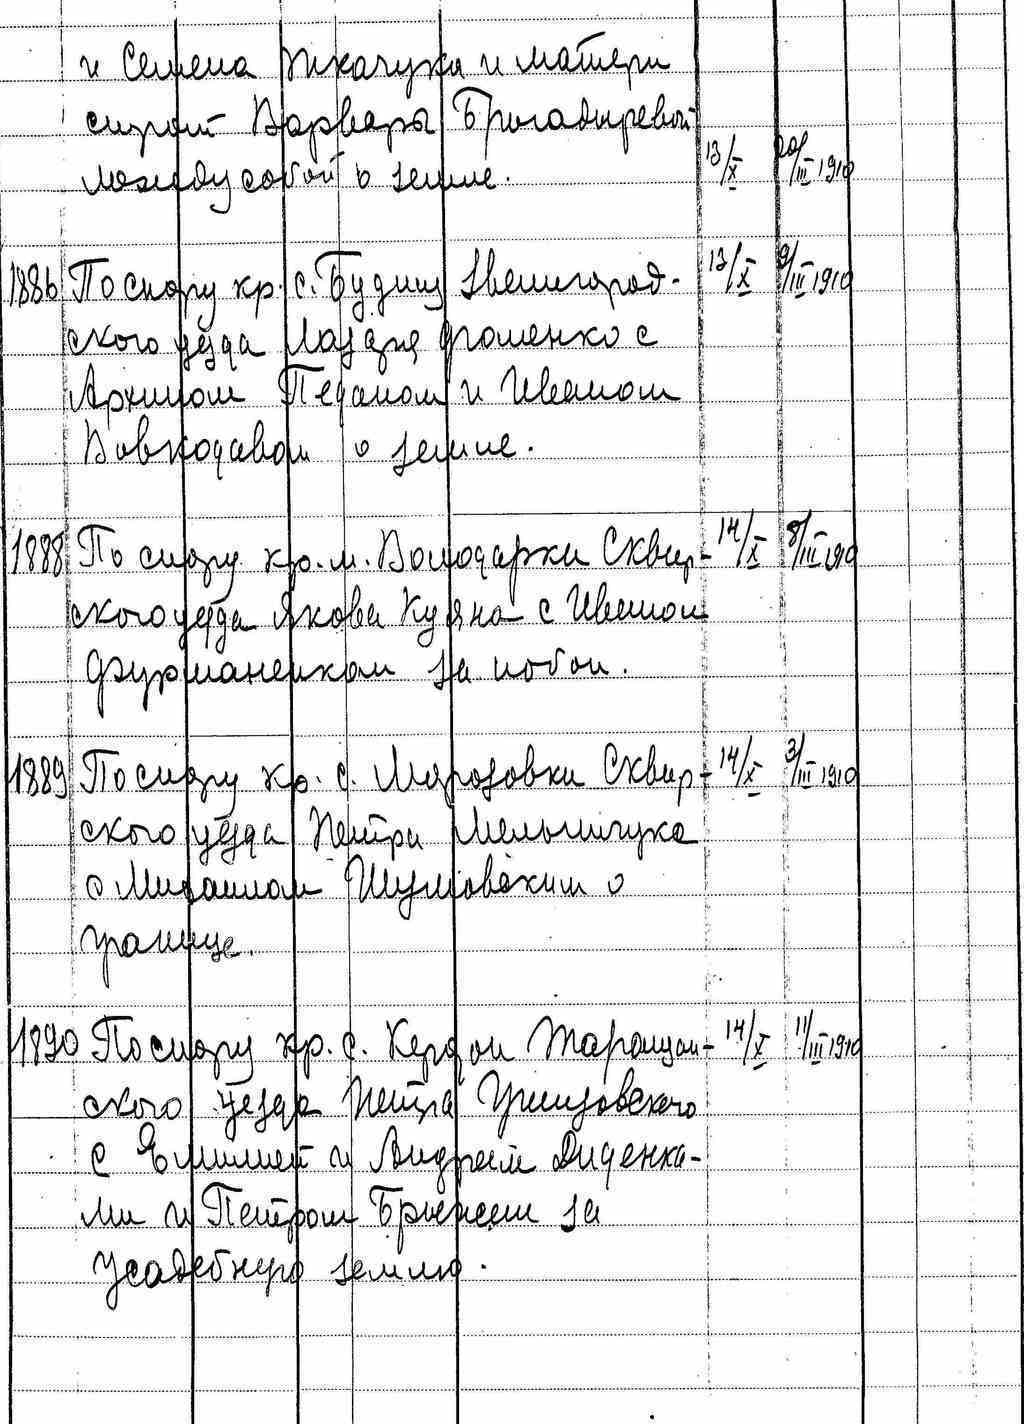 и Семена Ткачука и матери
сирот Варвары Бригадыревой
между собой о земле. 13/X 20/III 1910
1886 По спору кр. с. Будищ Звенигород- 13/X 9/III 1910
ского уезда Лазаря Фоменко с
Архипом Педаном и Иваном
Вовкодавом о земле.
1888 По спору кр. м. Володарки Сквир- 14/X 8/III 1910
ского уезда Якова Куяна с Иваном
Фурманенком за побои.
1889 По спору кр. с. Морозовки Сквир- 14/X 3/III 1910
ского уезда Петра Мельничука
с Михаилом Шумовским о
границе.
1890 По спору кр. с. Кердон Таращан- 14/X 11/III 1910
ского уезда Петра
с Емилией и Андреем Диденка-
ми и Петром за
усадебную землю.